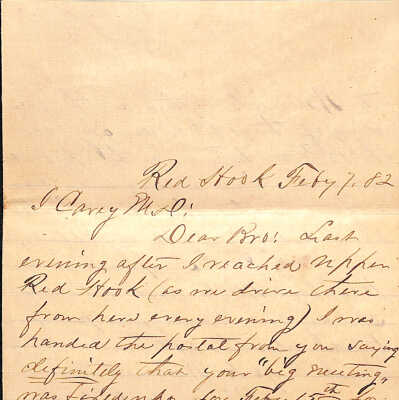 Red Hook Feby 7, 82
I Carey M.D:
Dear Bro: Last
evening after I reached Upper
Red Hook (as we drive there
from here every evening) I was
handed the postal from you saying
definitely that your "big meeting"
was for Feby 15th